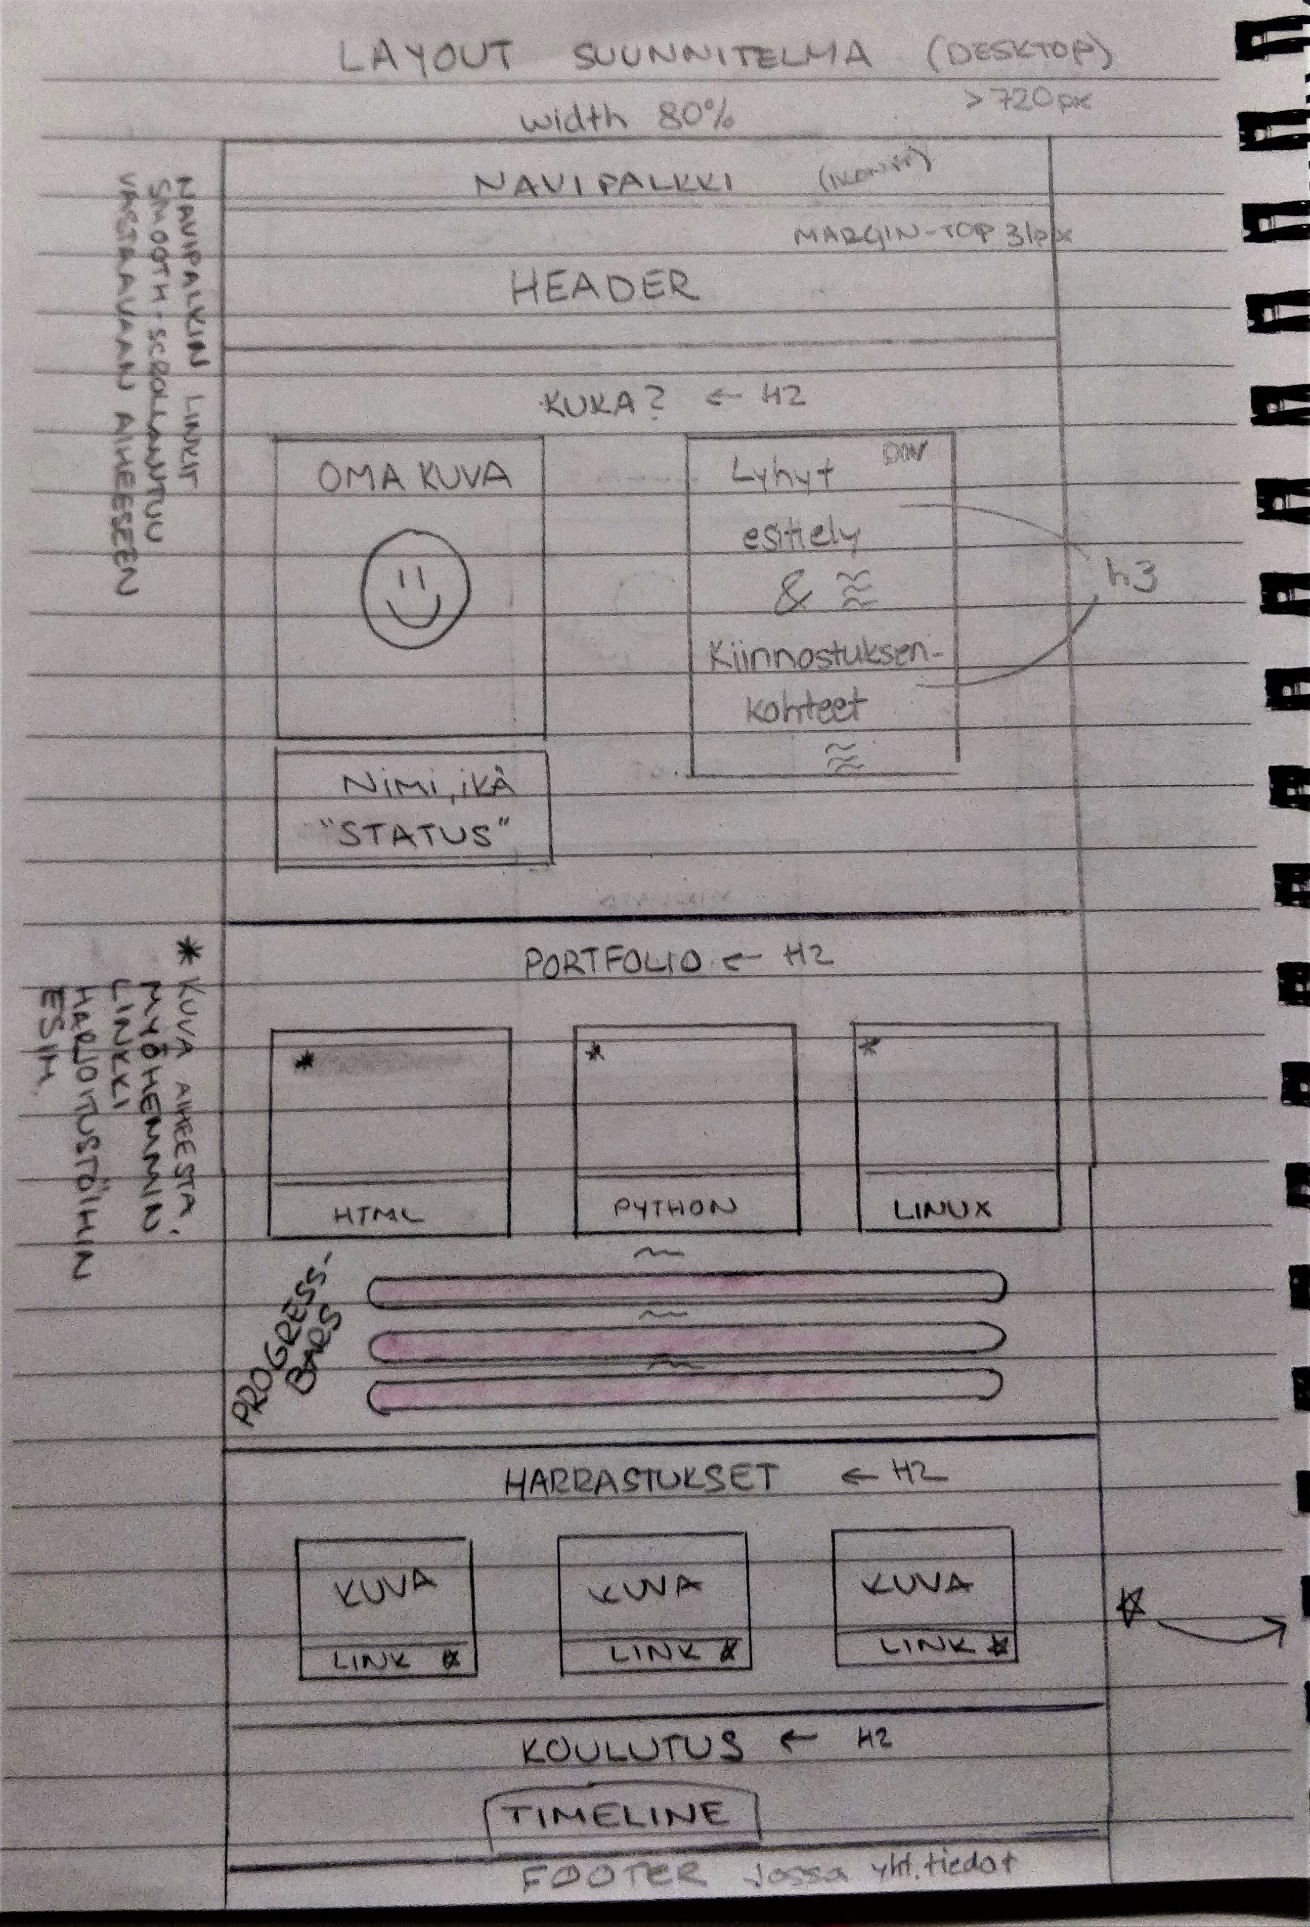 LAYOUT SUUNNITELMA (DESKTOP)
>720px
width 80%
NAVIPALKKI (IKONIT)
MARGIN-TOP 31px
HEADER
NAVIPALKIN LINKIT
SMOOTH-SCROLLAANTUU
VASTAAVAAN AIHEESEEN
KUKA? ← H2
OMA KUVA
DIV
Lyhyt
esittely
&
Kiinnostuksen-
kohteet
h3
Nimi, ikä
"STATUS"
PORTFOLIO ← H2
* KUVA AIHEESTA.
MYÖHEMMIN
LINKKI
HARJOITUSTÖIHIN
ESIM.
* * *
HTML PYTHON LINUX
PROGRESS-
BARS
HARRASTUKSET ← H2
KUVA KUVA KUVA
LINK ☆ LINK ☆ LINK ☆
☆ →
KOULUTUS ← H2
TIMELINE
FOOTER jossa yht.tiedot